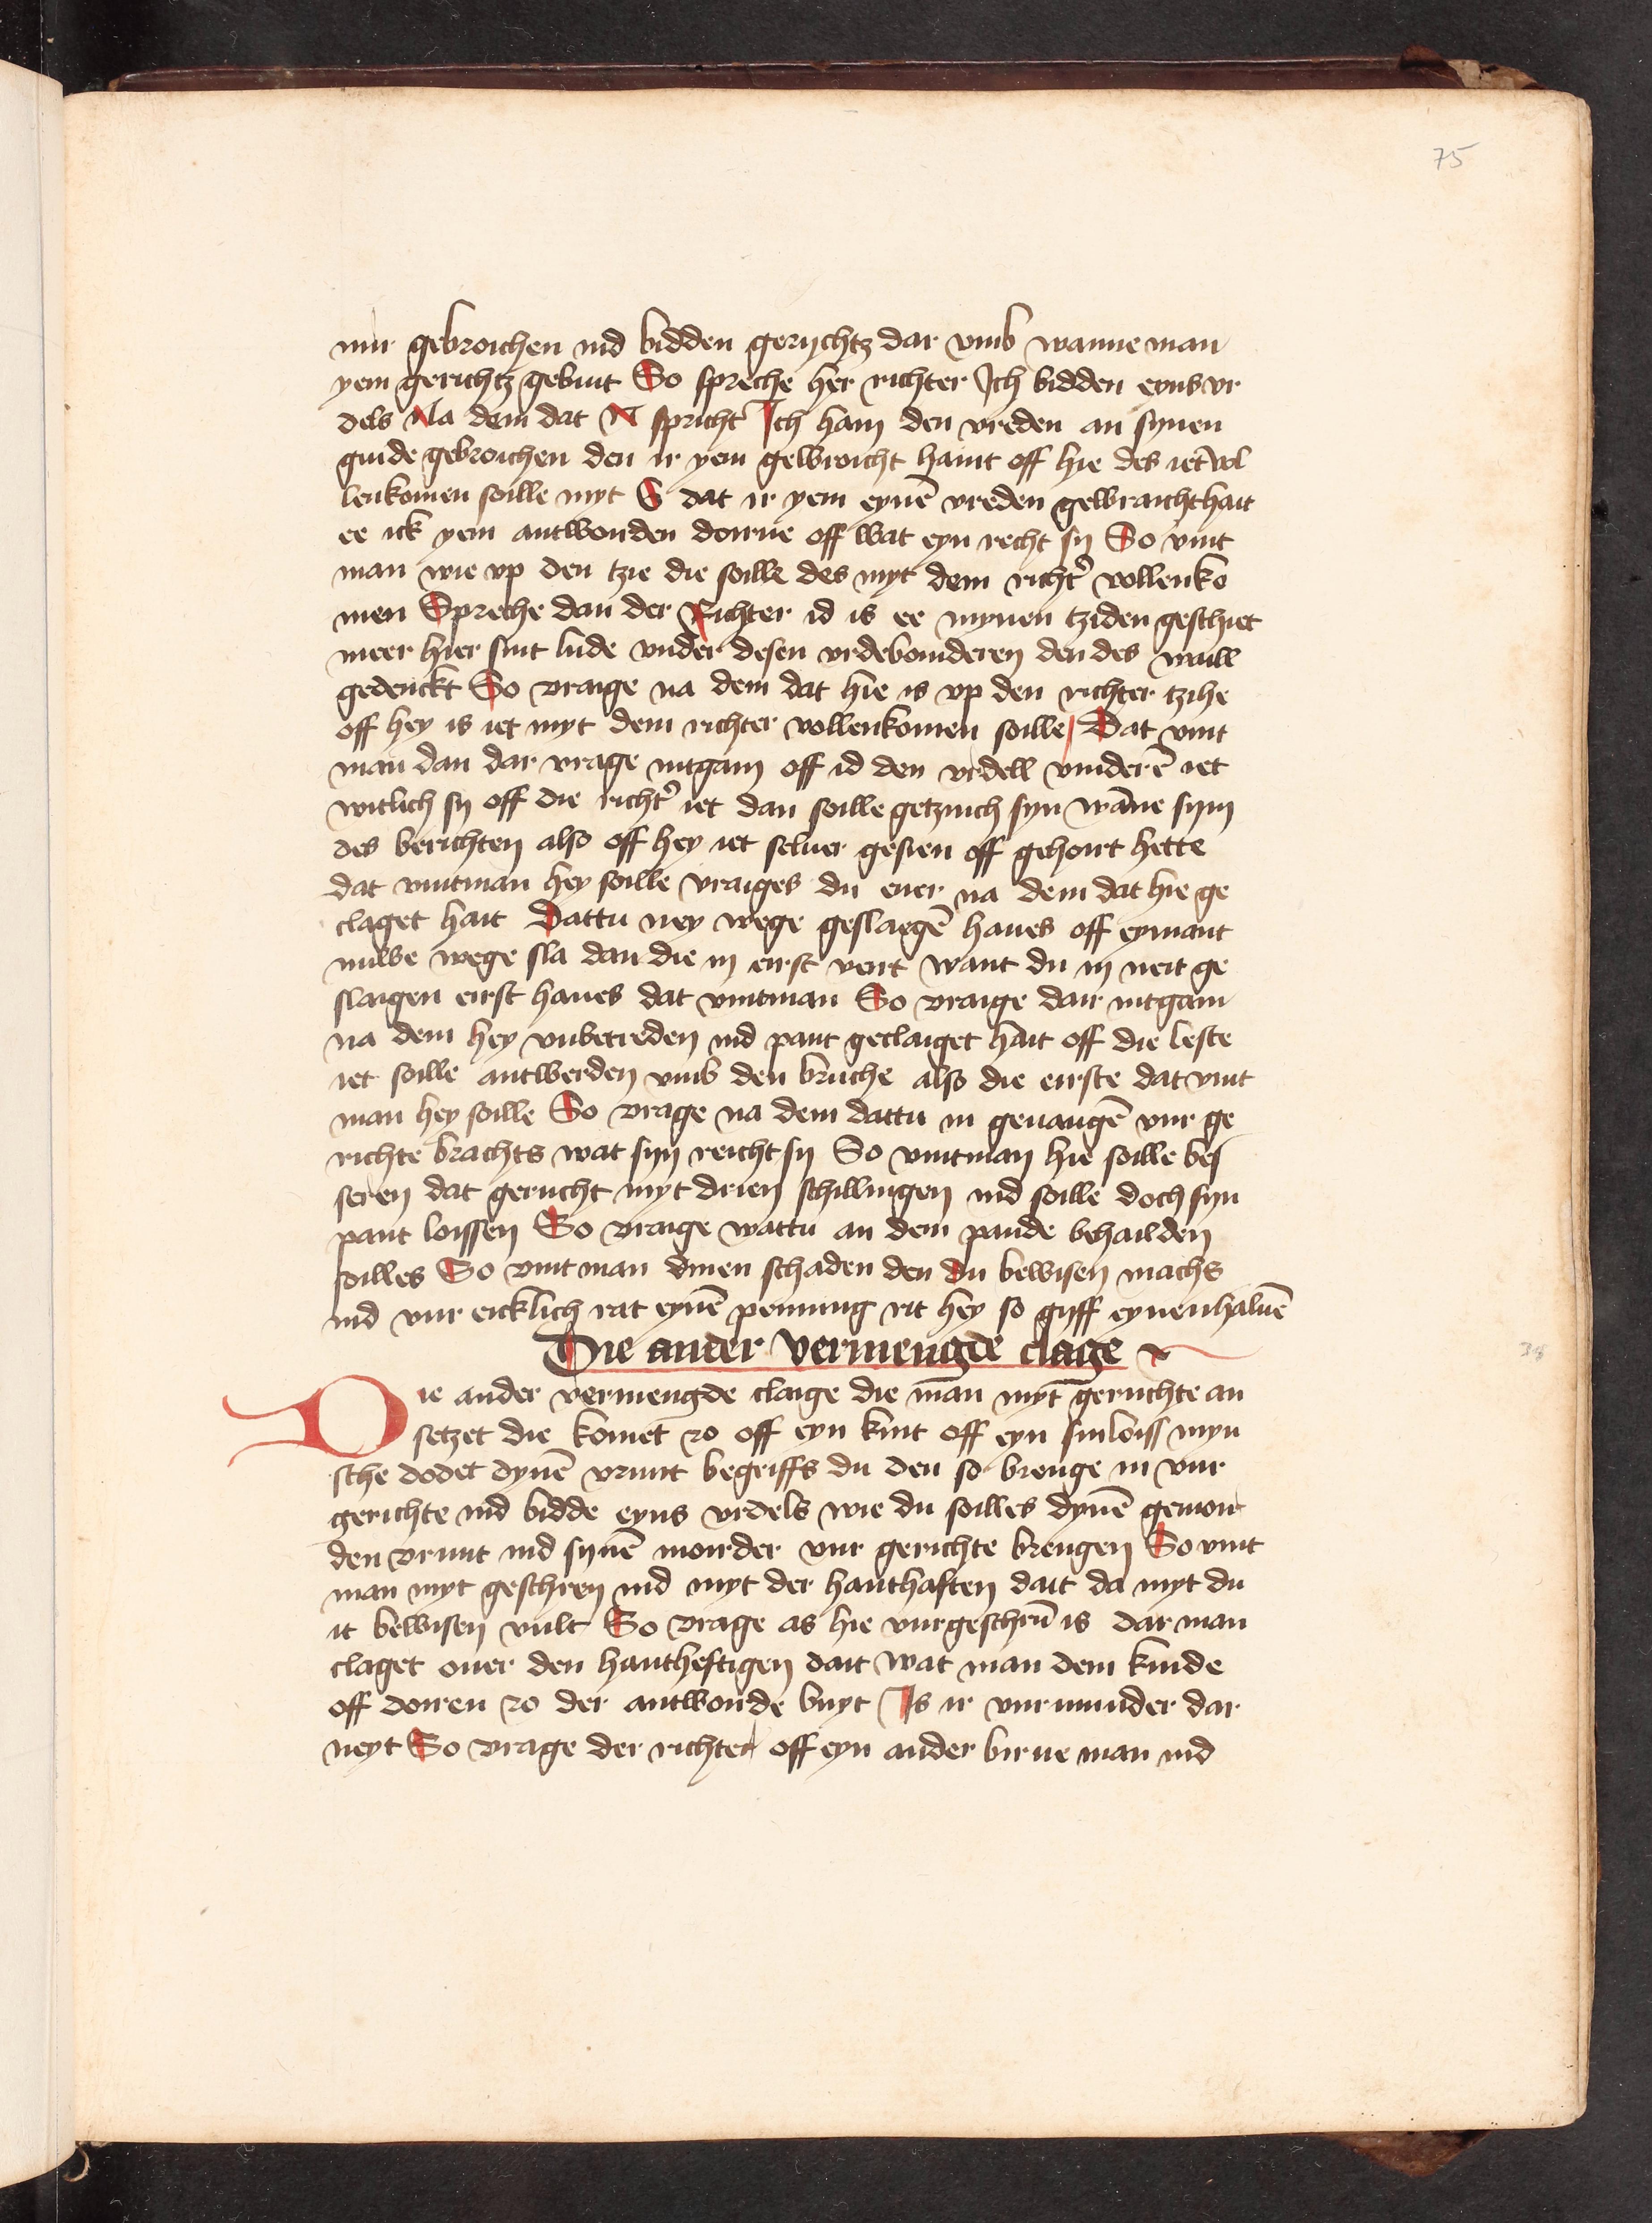 75
mir gebroichen ind bidden gerychtz dar vmb wanne man
yem gerichtz gebint So spreche her richter Ich bidden eyns vr
dels Na dem dat N spricht Ich hain den vreden an synen
guide gebroichen den ir yem gewroicht haint off hie des iet vol
lenkomen soille myt S dat ir yem eynē vreden gewraicht hait
ee ick yem antworden dorue off wat eyn recht sy So vint
man wie vp den tzie die soille des myt dem richt' vollenko
men Spreche dan der Richter id is ee mynen tziden geschiet
meer hier sint lude vnder desen vrdebomderen den des waill
gedenckt So vraige na dem dat hie is vp den richter tzihe
off hey is iet myt dem richter vollenkomen soille Dat vint
man dan dar vrage intgain off id den vrdell vinderē iet
witlich sy off die richt' iet dan soille getzuich syn wāne syn
des berichten also off hey iet seluer gesien off gehoirt hette
dat vintman hey soille vraiges du euer na dem dat hie ge
claget hait Dattu ney wege geslaegē haues off eymant
nuwe wege sla dan die in eirst veirt want du in neit ge
slaigen eirst haues dat vintman So vraige dair intgain
na dem hey vnbetreden ind pant geclaiget hait off die leste
iet soille antwerden vmb den bruche also die eirste dat vint
man hey soille So vrage na dem dattu in geuangē vur ge
richte brachts wat syn reicht sy So vintman hie soille bes
seren dat gerucht myt drien schillingen ind soille doch syn
pant loissen So vraige wattu an dem pande behailden
soilles So vint man dinen schaden den du bewisen machs
ind vur eicklich rat eynē penning rit hey so gyff eynen haluē
Die ander vermengde clage
Die ander vermengde claige die man myt geruchte an
setzet die komet zo off eyn kint off eyn sinloiss myn
sche dodet dynē vrunt begriffs du den so brenge in vur
gerichte ind bidde eyns vrdels wie du soilles dynē gemoir
den vrunt ind synē morder vur gerichte brengen So vint
man myt geschrey ind myt der hanthaften dait da myt du
it bewisen vult So vrage as hie vurgeschrū is dar man
claget ouer den hantheftigen dait wat man dem kinde
off doiren zo der antworde buyt Is ir vurmunder dar
neyt So vrage der richter off eyn ander birue man ind